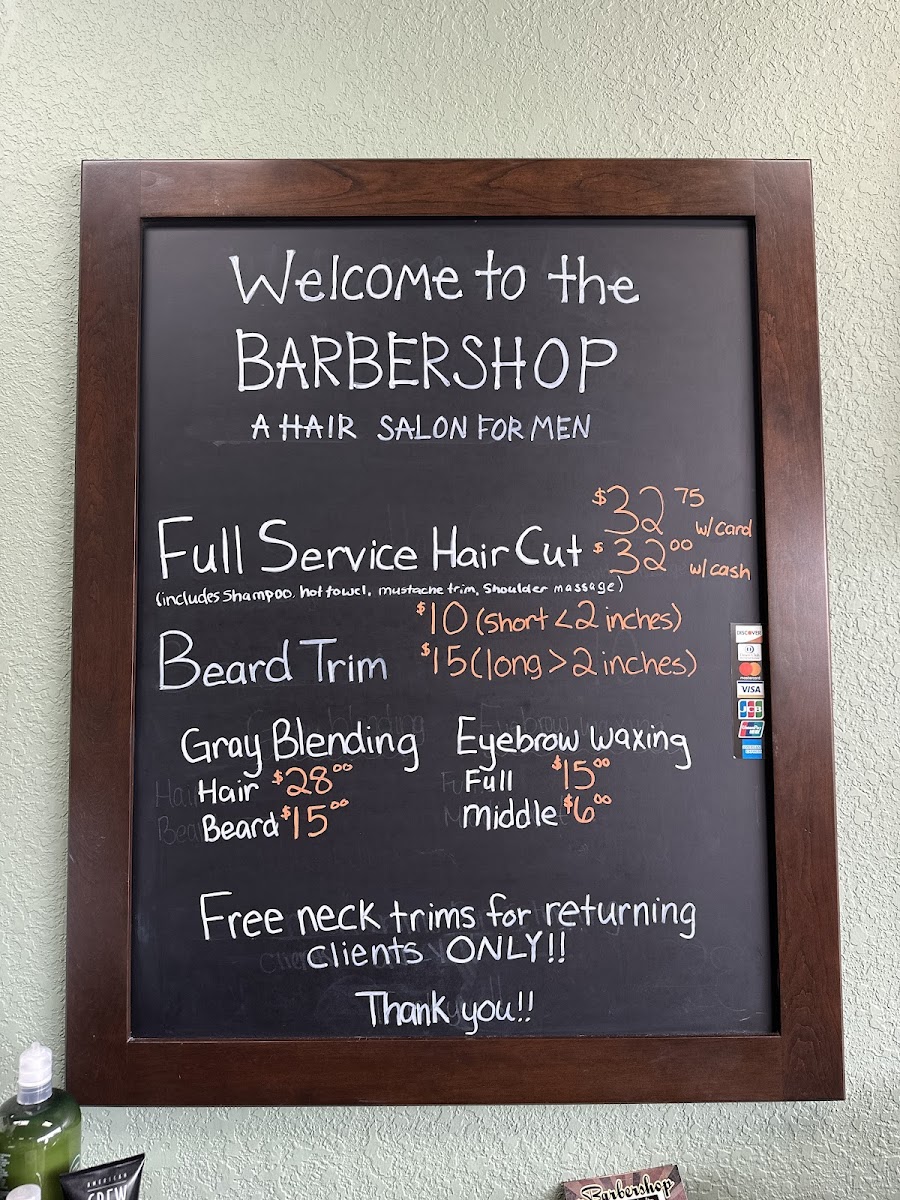 Welcome to the
BARBERSHOP
A HAIR SALON FOR MEN
Full Service Hair Cut $32 75 w/card
$32 00 w/cash
(includes Shampoo, hot towel, mustache trim, Shoulder massage)
Beard Trim $10 (short < 2 inches)
$15 (long > 2 inches)
DISCOVER
mastercard
VISA
JCB
AMERICAN EXPRESS
Gray Blending
Hair $28 00
Beard $15 00
Eyebrow waxing
Full $15 00
middle $6 00
Free neck trims for returning
clients ONLY!!
Thank you!!
AMERICAN
CREW
Barbershop